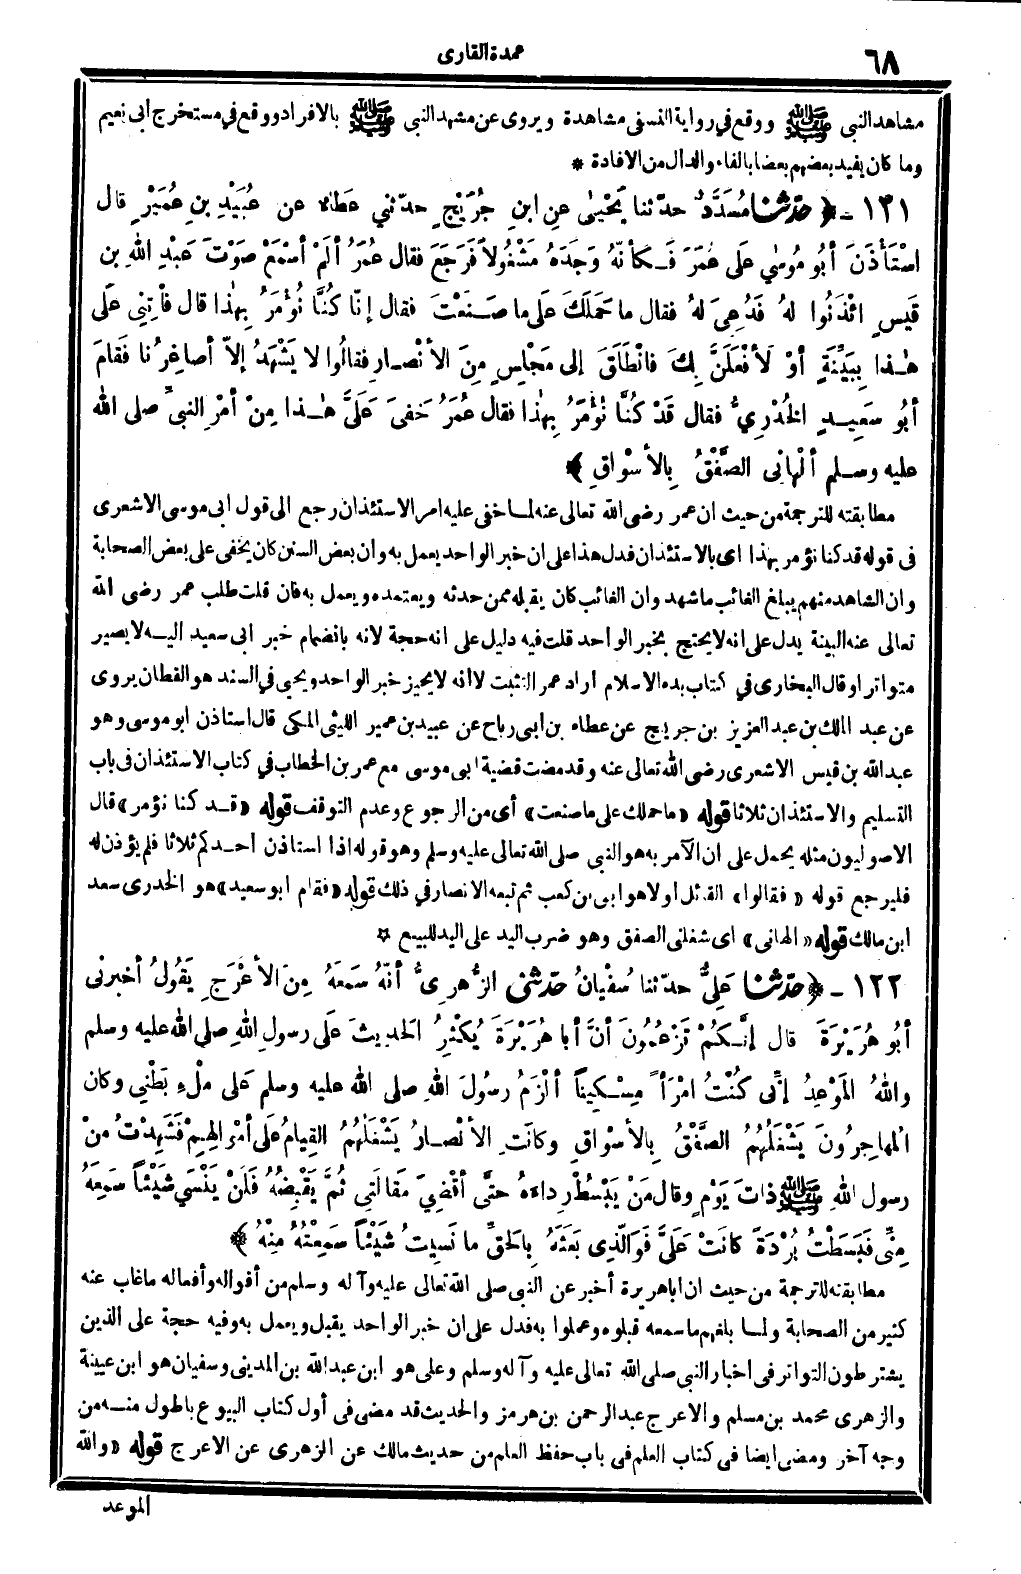 ٦٨
عمدة القارى
مشاهد النبي ﷺ ووقع في رواية النسفى مشاهدة ويروى عن مشهد النبي ﷺ بالافراد ووقع في مستخرج أبى نعيم
وما كان يفيد بعضهم بعضا بالفاء والدال من الافادة *
١٢١ - ﴿ حدّثنا مُسَدَّدٌ حدّثنا يَحْيىٰ عنِ ابنِ جُرَيْجٍ حدّثني عَطَاءٌ عن عُبَيْدِ بنِ عُمَيْرٍ قال
اسْتَأْذَنَ أبُو مُوسٰي عَلى عُمَرَ فَـكأنّهُ وَجَدَهُ مَشْغُولاً فَرَجَعَ فقال عُمَرُ ألَمْ أسْمَعْ صَوْتَ عَبْدِ اللهِ بنِ
قَيسٍ ائْذَنُوا لهُ فَدُعِىَ لهُ فقال ما حَمَلَكَ عَلى ما صَـنَعْتَ فقال إنّا كُنَّا نُؤْمَرُ بِهٰذا قال فأْتِني عَلَى
هٰـذا بِبَيِّنَةٍ أوْ لَأفْعَلَنَّ بِكَ فانْطَلَقَ إلى مَجْلِسٍ مِنَ الأنْصـارِ فقالُوا لا يَشْهَدُ إلاّ أصاغِرُنا فَقامَ
أبُو سَعِيـدٍ الخُدْرِيُّ فقال قَدْ كُنَّا نُؤْمَرُ بِهٰذا فقال عُمَرُ خَفِىَ عَلَيَّ هٰـذا مِنْ أمْرِ النبيِّ صلى الله
عليه وسـلم ألْهانِى الصَّفْقُ بِالأسْواقِ ﴾
مطابقته للترجمة من حيث ان عمر رضى الله تعالى عنه لما خفى عليه امر الاستئذان رجع الى قول ابى موسى الاشعرى
فى قوله قد كنا نؤمر بهذا اى بالاستئذان فدل هذا على ان خبر الواحد يعمل به وان بعض السنن كان يخفى على بعض الصحابة
وان الشاهد منهم يبلغ الغائب ما شهد وان الغائب كان يقبله ممن حدثه ويعتمده ويعمل به فان قلت طلب عمر رضى الله
تعالى عنه البينة يدل على انه لا يحتج بخبر الواحد قلت فيه دليل على انه حجة لانه بانضمام خبر ابى سعيد اليـه لا يصير
متواترا وقال البخارى في كتاب بدء الاسلام اراد عمر التثبت لا انه لا يجيز خبر الواحد ويحيى في السند هو القطان يروى
عن عبد الملك بن عبد العزيز بن جريج عن عطاء بن ابى رباح عن عبيد بن عمير الليثى المكى قال استاذن ابو موسى وهو
عبد الله بن قيس الاشعرى رضى الله تعالى عنه وقد مضت قضية ابى موسى مع عمر بن الخطاب في كتاب الاستئذان فى باب
التسليم والاستئذان ثلاثا قوله «ما حملك على ما صنعت» أى من الرجوع وعدم التوقف قوله «قـد كنا نؤمر» قال
الاصوليون مثله يحمل على ان الآمر به هو النبي صلى الله تعالى عليه وسلم وهو قوله اذا استاذن احـدكم ثلاثا فلم يؤذن له
فليرجع قوله « فقالوا» القائل اولا هو ابى بن كعب ثم تبعه الانصار في ذلك قوله «فقام ابو سعيد» هو الخدرى سعد
ابن مالك قوله «الهانى» اى شغلنى الصفق وهو ضرب اليد على اليد للبيع *
١٢٢ - ﴿ حدّثنا عَلِيٌّ حدّثنا سُفْيانُ حدّثنى الزُّهرِىُّ أنّهُ سَمَعَهُ مِنَ الأعْرَجِ يَقُولُ أخبرنى
أبُو هُرَيْرَةَ قال إنَّـكُمْ تَزْعُمُونَ أنَّ أبا هُرَيْرَةَ يُكْثِرُ الحديثَ عَلى رسولِ اللهِ صلى الله عليه وسلم
واللهُ المَوْعِدُ إنِّى كُنْتُ امْرَأً مِسْـكِيناً ألْزَمُ رسُولَ اللهِ صلى الله عليه وسلم عَلى مِلْءِ بَطْنِي وكان
المُهاجِرُونَ يَشْغَلُهُمُ الصَّفْقُ بِالأسْواقِ وكانَتِ الأنْصـارُ يَشْغَلُهُمُ القِيامُ عَلَى أمْوالِهِمْ فَشَهِدْتُ مِنْ
رسولِ اللهِ ﷺ ذاتَ يَوْمٍ وقال مَنْ يَبْسُطْ رِداءَهُ حتَّى أقْضِيَ مَقالَتِي ثُمَّ يَقْبِضُهُ فَلَنْ يَنْسَي شَيْئاً سَمِعَهُ
مِنِّى فَبَسَطْتُ بُرْدَةً كانَتْ عَلَيَّ فَوَالّذِى بَعَثَهُ بِالحَقِّ ما نَسِيتُ شَيْئاً سَمِعْتُهُ مِنْهُ ﴾
مطابقته للترجمة من حيث ان اباهريرة أخبر عن النبي صلى الله تعالى عليه وآله وسلم من أقواله وأفعاله ما غاب عنه
كثير من الصحابة ولمـا بلغهم ما سمعه قبلوه وعملوا به فدل على ان خبر الواحد يقبل ويعمل به وفيه حجة على الذين
يشترطون التواتر فى اخبار النبي صلى الله تعالى عليه وآله وسلم وعلى هو ابن عبد الله بن المدينى وسفيان هو ابن عيينة
والزهرى محمد بن مسلم والاعرج عبد الرحمن بن هرمز والحديث قد مضى فى أول كتاب البيوع باطول منـه من
وجه آخر ومضى ايضا فى كتاب العلم فى باب حفظ العلم من حديث مالك عن الزهرى عن الاعرج قوله «والله
الموعد